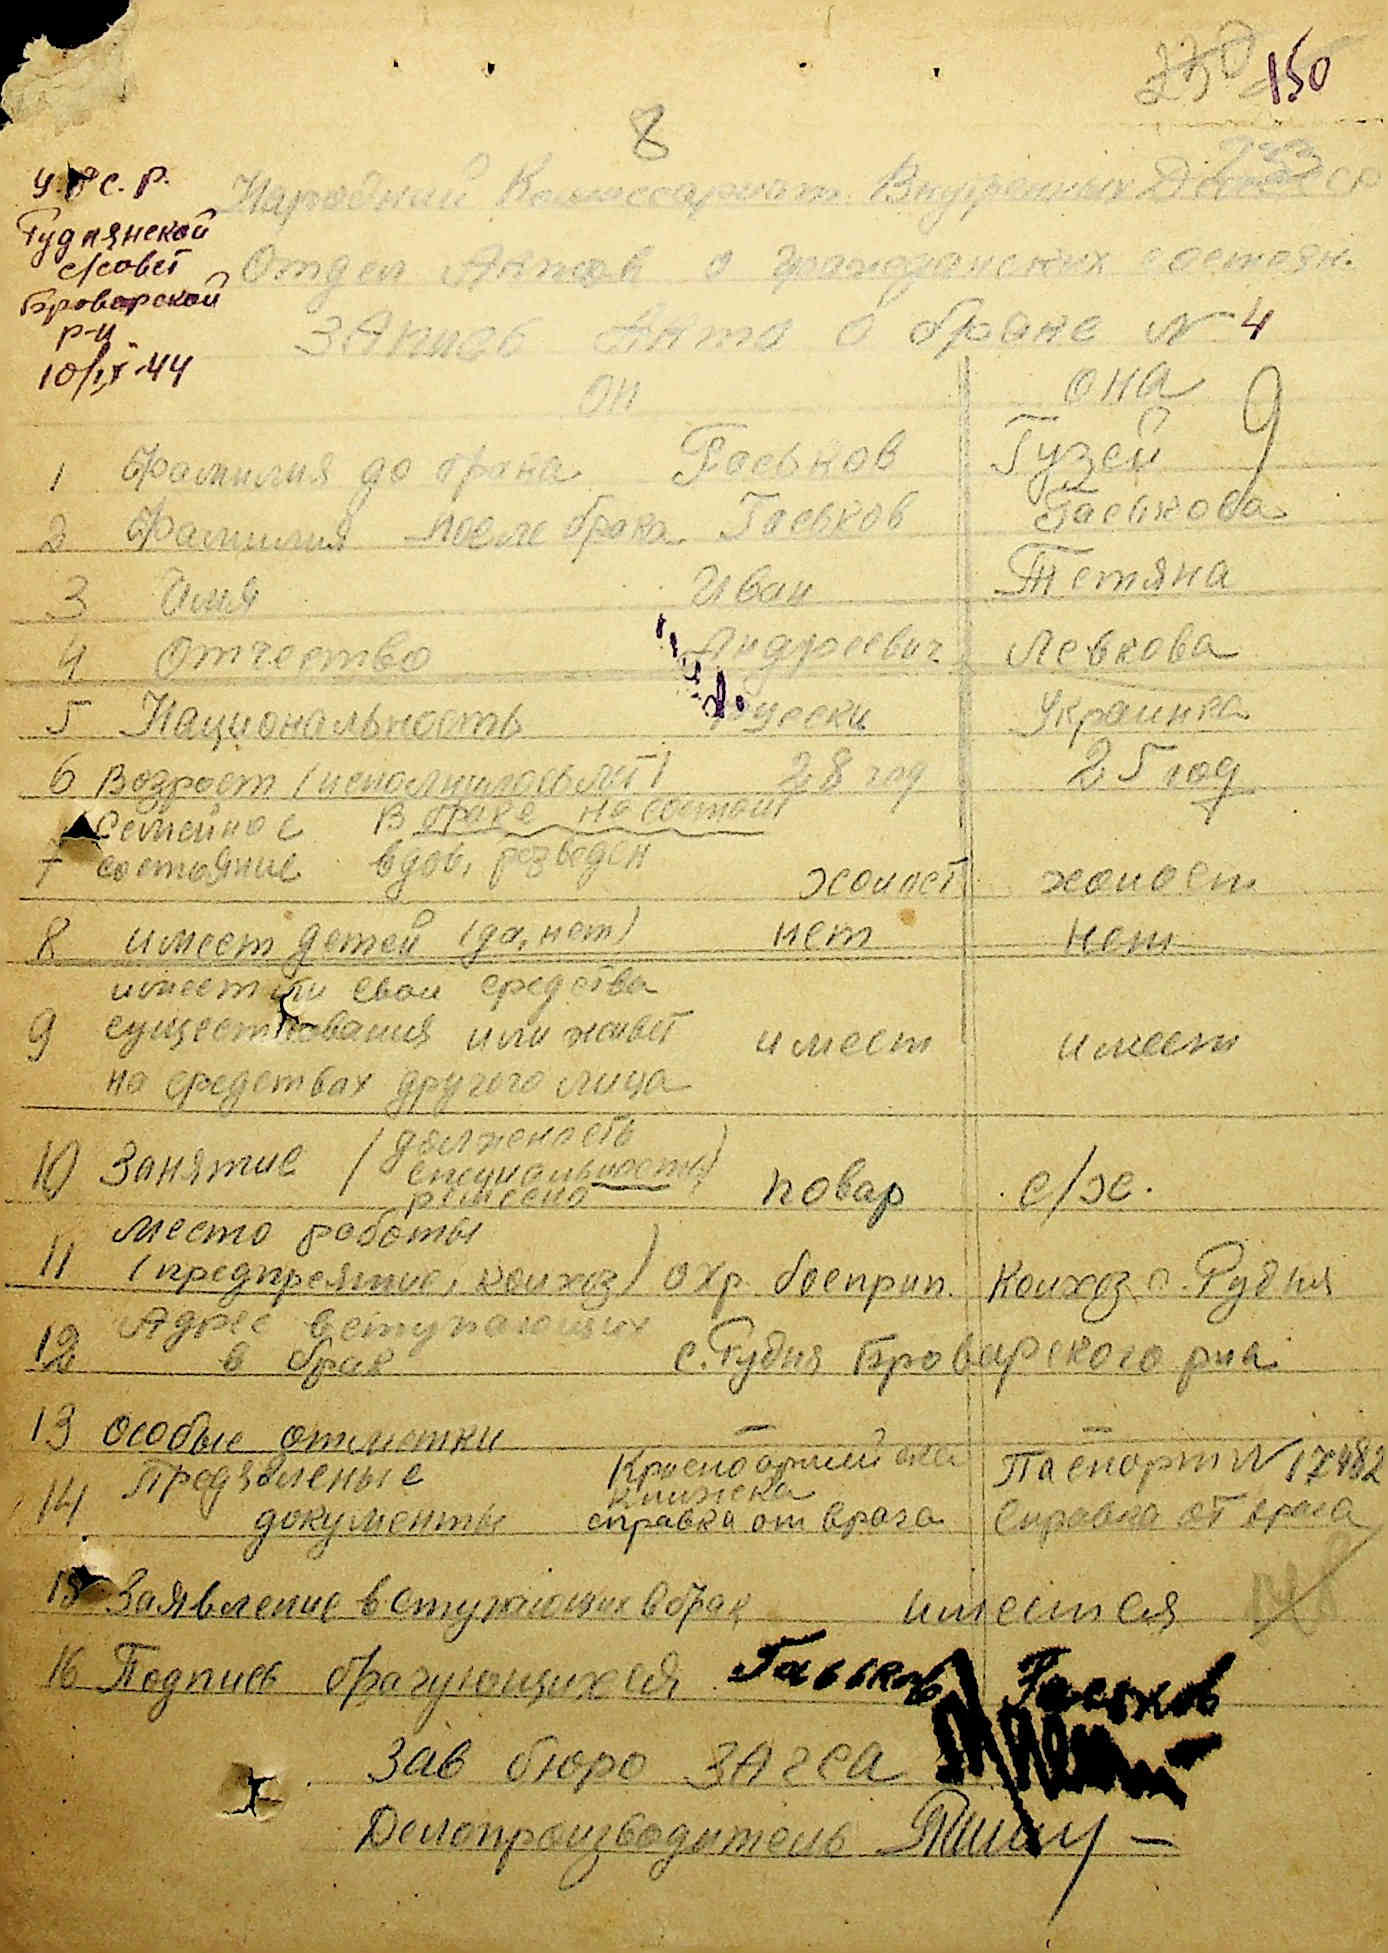 150
8
У.С.С.Р.
Руднянской
с/совет
Броварской
р-н.
10/IX-44
Народний Комиссариат Внутренных Дел СССР
Отдел Актов о гражданских состоян.
ЗАпись Акта о браке N 4
он она 9
1 Фамилия до брака Гаськов Гузей
2 Фамилия после брака Гаськов Гаськова
3 Имя Иван Тетяна
4 Отчество Андреевич Левкова
5 Национальность Русски Украинка
6 Возраст (исполнилось лет) 28 год 25 год
Семейное в браке не состоит
7 состояние вдов, розведен холост холост
8 имеет детей (да, нет) нет нет
имеет ли свои средства
9 существования или живет имеет имеет
на средствах другого лица
10 Занятие (должность специальность ремесло) повар с/х.
место работы
11 (предпреятие, колхоз) охр. боеприп. Колхоз с. Рудня
Адрес вступающих
12 в брак с. Рудня Броварского рна
13 особые отметки — —
14 Предявленые Красноармейска Паспорт N 17482
книжка
документы справка от врача Справка от врача
15 Заявление вступающих в брак имеется
16 Подпись брачующихся Гаьков Гаськов
Зав бюро ЗАгса
Делопроизводитель